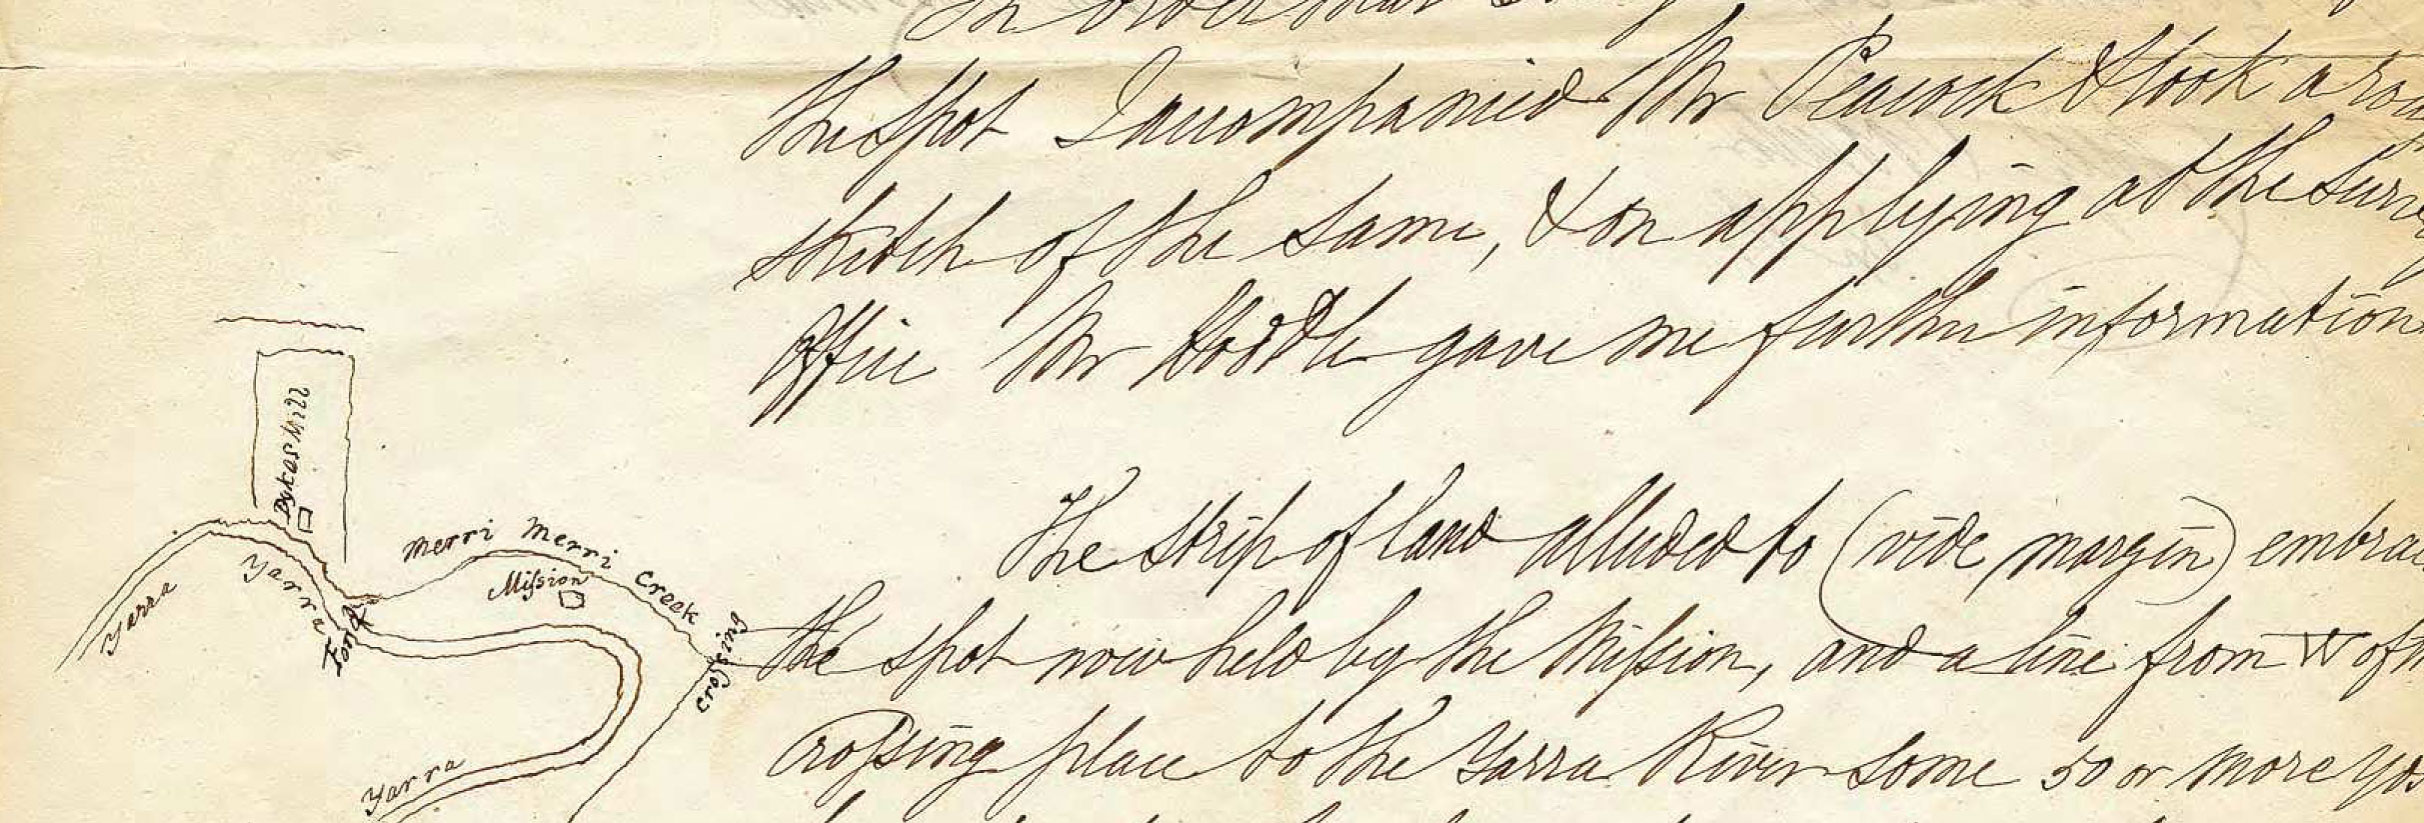 In order that
the spot I accompanied Mr Peacock & took a rou
sketch of the same, & on applying at the Surve
Office Mr Hoddle gave me further information
The strip of land alluded to (vide margin) embrac
the spot now held by the Mission, and a line from W of th
Crossing place to the Yarra River some 50 or more yar
Dykes Mill
Merri Merri Creek
Mission
Yarra
Yarra
Ford
Crossing
Yarra